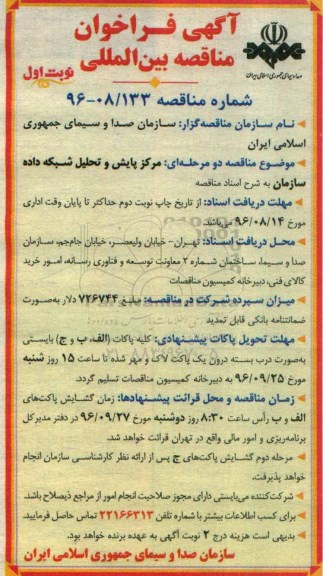 آگهی فراخوان
مناقصه بین‌المللی
نوبت اول
صدا و سیمای جمهوری اسلامی ایران
شماره مناقصه ۹۶-۰۸/۱۳۳
نام سازمان مناقصه‌گزار: سازمان صدا و سیمای جمهوری
اسلامی ایران
موضوع مناقصه دو مرحله‌ای: مرکز پایش و تحلیل شبکه داده
سازمان به شرح اسناد مناقصه
مهلت دریافت اسناد: از تاریخ چاپ نوبت دوم حداکثر تا پایان وقت اداری
مورخ ۹۶/۰۸/۱۴ می‌باشد.
محل دریافت اسناد: تهران- خیابان ولیعصر، خیابان جام‌جم، سازمان
صدا و سیما، ساختمان شماره ۲ معاونت توسعه و فناوری رسانه، امور خرید
کالای فنی، دبیرخانه کمیسیون مناقصات
میزان سپرده شرکت در مناقصه: مبلغ ۷۲۶۷۴۴ دلار به‌صورت
ضمانتنامه بانکی قابل تمدید
مهلت تحویل پاکات پیشنهادی: کلیه پاکات (الف، ب و ج) بایستی
به‌صورت درب بسته درون یک پاکت لاک و مهر شده تا ساعت ۱۵ روز شنبه
مورخ ۹۶/۰۹/۲۵ به دبیرخانه کمیسیون مناقصات تسلیم گردد.
زمان مناقصه و محل قرائت پیشنهادها: زمان گشایش پاکت‌های
الف و ب رأس ساعت ۸:۳۰ روز دوشنبه مورخ ۹۶/۰۹/۲۷ در دفتر مدیر کل
برنامه‌ریزی و امور مالی واقع در تهران قرائت خواهد شد.
مرحله دوم گشایش پاکت‌های ج پس از ارائه نظر کارشناسی سازمان انجام
خواهد پذیرفت.
شرکت‌کننده می‌بایستی دارای مجوز صلاحیت انجام امور از مراجع ذیصلاح باشد.
برای کسب اطلاعات بیشتر با شماره تلفن ۲۲۱۶۶۳۱۳ تماس حاصل فرمایید.
بدیهی است هزینه درج ۲ نوبت آگهی به عهده برنده خواهد بود.
سازمان صدا و سیمای جمهوری اسلامی ایران